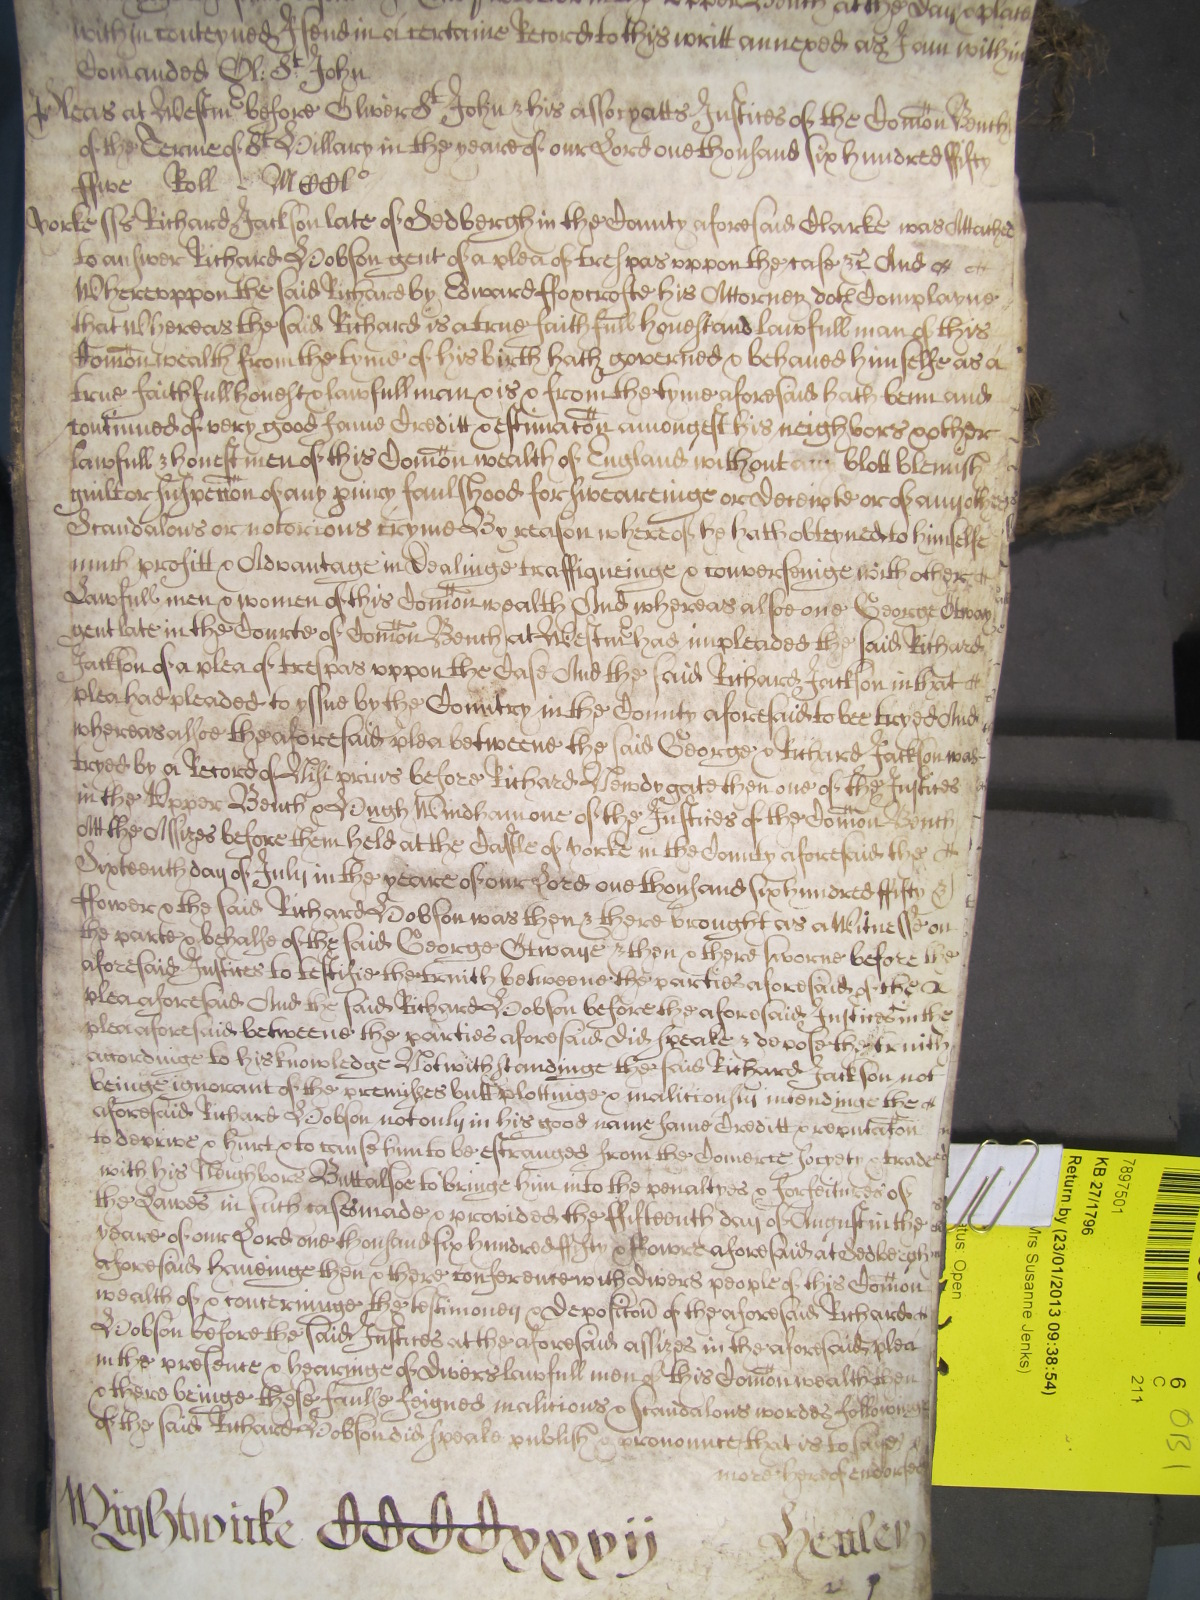 within conteyned I send in a certaine Record to this writt annexed as I am within
Comanded Ol: St John
Pleas at Westmr before Oliver St John & his assocyatts Justices of the Comon Bench
of the Terme of St Hillary in the yeare of our Lord one thousand six hundred fifty
ffive Roll MCClo
Yorke ss Richard Jackson late of Sedbergh in the County aforesaid Clarke was Attached
to answer Richard Dobson gent of a plea of trespas uppon the case &c And
Whereuppon the said Richard by Edward ffoxcrofte his Attorney doth Complayne
that whereas the said Richard is a true faithfull honest and lawfull man of this
Comon wealth from the tyme of his birth hath governed & behaued himselfe as a
true faithfull honest & lawfull man & is & from the tyme aforesaid hath benn and
continued of very good fame Creditt & estimacon amongest his neighbors & other
lawfull & honest men of this Comon wealth of England without blott blemish
guilt or suspection of any faulshood forsweareinge or deceipte or of any other
Scandalous or notorious cryme By reason whereof he hath obteyned to himselfe
much profitt & Advantage in Dealinge traffiqueinge & converseinge with other
Lawfull men & women of this Comon wealth And whereas alsoe one George Otway
gent late in the Courte of Comon Bench at Westmr had impleaded the said Richard
Jackson of a plea of trespas uppon the Case And the said Richard Jackson in that
plea had pleaded to yssue by the Countrey in the County aforesaid to bee tryed And
whereas alsoe the aforesaid plea betweene the said George & Richard Jackson was
tryed by a Record of Nisi prius before Richard Newdygate then one of the Justices
in the Upper Bench & Hugh Windham one of the Justices of the Comon Bench
Att the Assizes before them held at the Castle of Yorke in the County aforesaid the
Sixteenth day of July in the yeare of our Lord one thousand six hundred fifty
ffower & the said Richard Dobson was then & there brought as a Witnesse on
the parte & behalfe of the said George Otwaye & then & there sworne before the
aforesaid Justices to testifie the truith betweene the parties aforesaid of the
plea aforesaid And the said Richard Dobson before the aforesaid Justices in the
plea aforesaid betweene the parties aforesaid did speake & depose the truith
accordinge to his knowledge Notwithstandinge the said Richard Jackson not
beinge ignorant of the premisses but plottinge & malitiously intendinge the
aforesaid Richard Dobson not only in his good name fame Creditt & reputacon
to deprive & hurt & to cause him to be estranged from the Comerce socyety & trade
with his Neighbors Butt alsoe to bringe him into the penaltyes & forfeitures of
the Lawes in such cases made & provided the fifteenth day of August in the
yeare of our Lord one thousand six hundred fifty & ffowre aforesaid at Sedbergh
aforesaid haveinge then & there conference with divers people of this Comon
wealth of & concerninge the testimoney & deposicon of the aforesaid Richard
Dobson before the said Justices at the aforesaid assizes in the aforesaid plea
in the presence & hearinge of divers lawfull men of this Comon wealth then
& there beinge these faulse feigned malitious & scandalous wordes followinge
of the said Richard Dobson did speake publish & pronounce that is to saye
more hereof endorsed
Wightwicke CCCCxxxvij Henley
7897501
KB 27/1796
Return by (23/01/2013 09:38:54)
Mrs Susanne Jenks)
atus: Open
6
C
211
OB1